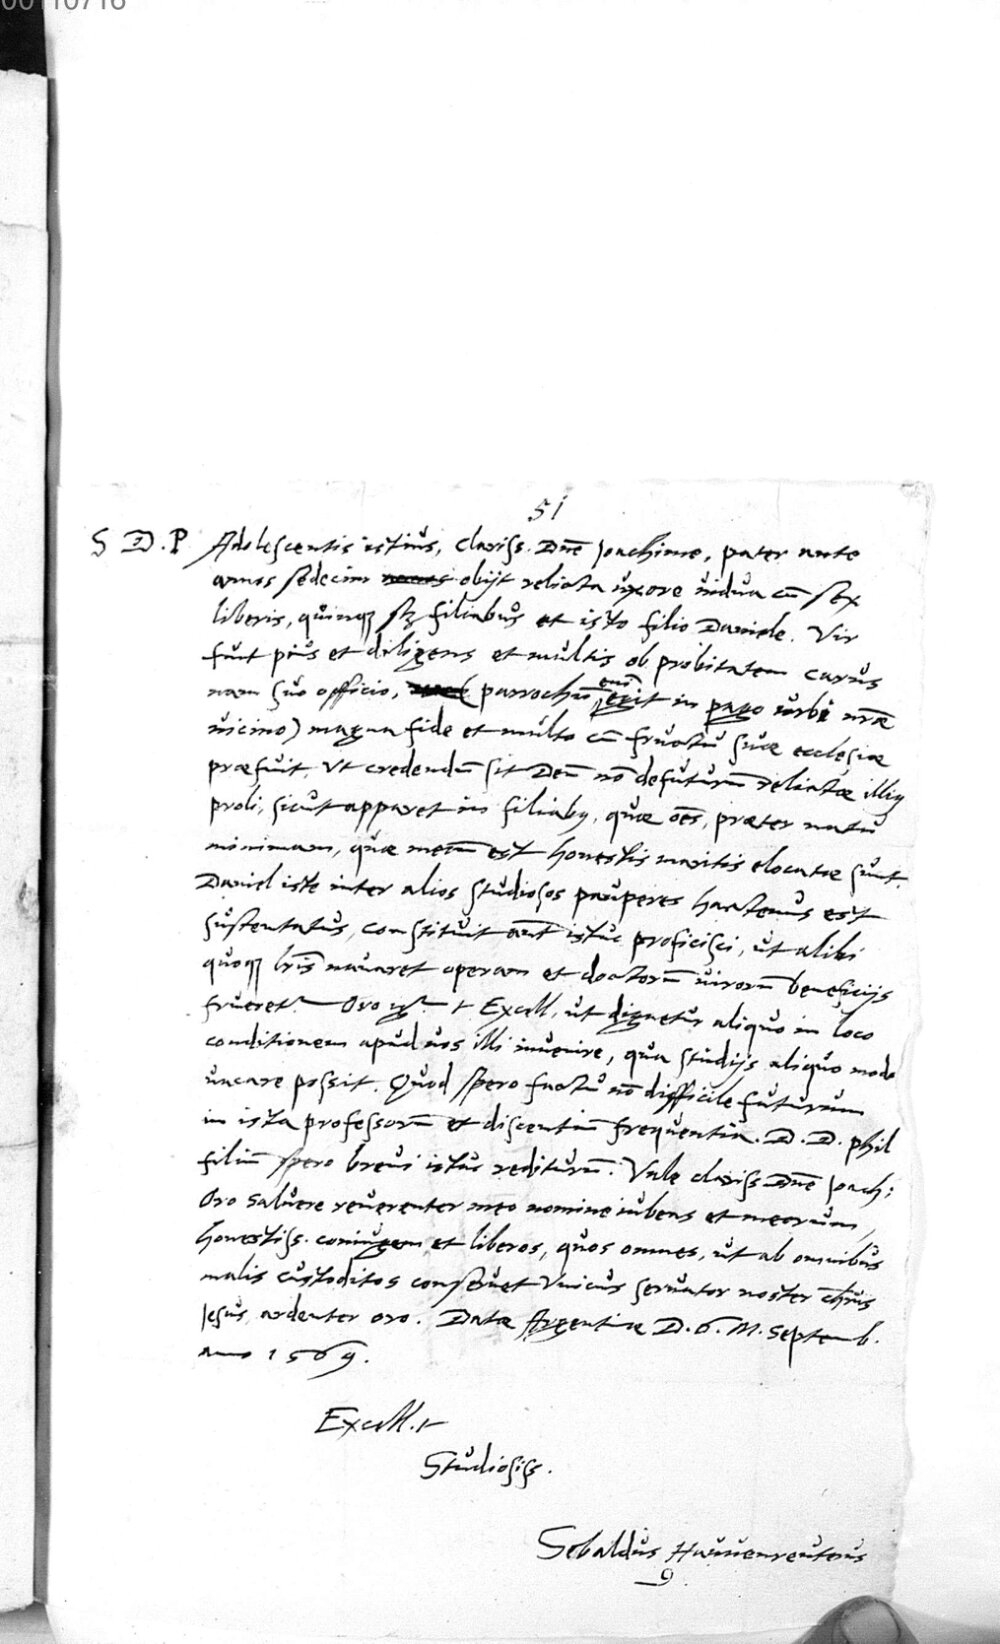 00110716
51
S D. P. Adolescentis istius, clariss. Dne Joachime, pater ante
annos sedecim obijt relicta uxore vidua cū sex
liberis, quinq; sz filiabus et isto filio Daniele. Vir
fuit pius et diligens et multis ob probitatem carus
nam suo officio, (parrochū enī egit in pago urbi nræ
vicino) magna fide et multo cū fructu suæ ecclesiæ
præfuit. Ut credendū sit Deū nō defuturū relictæ illiꝰ
proli, sicut apparet in filiabꝰ, quæ oēs, præter natu
minimam, quæ mecū est honestis maritis elocatæ sunt.
Daniel iste inter alios studiosos pauperes hactenus est
sustentatus, constituit aut istuc proficisci, ut alibi
quoq; lris navaret operam et doctorū virorū beneficijs
frueret. Oro igr t Excell, ut dignetur aliquo in loco
conditionem apud vos illi invenire, qua studijs aliquo modo
vacare possit. Quod spero factu nō difficile futurum
in ista professorū et discentiū frequentia. D. D. phil
filiū spero brevi istuc rediturū. Vale clariss Dne Joach:
Oro salvere reverenter meo nomine iubens et meorum,
honestiss. coniugem et liberos, quos omnes, ut ab omnibus
malis custoditos conservet Unicus servator noster Chrus
Jesus, ardenter oro. Datæ Argentinæ D. 6. M. Septemb.
anno 1569.
Excell. t
Studiosiss.
Sebaldus Hawenreuterus
D